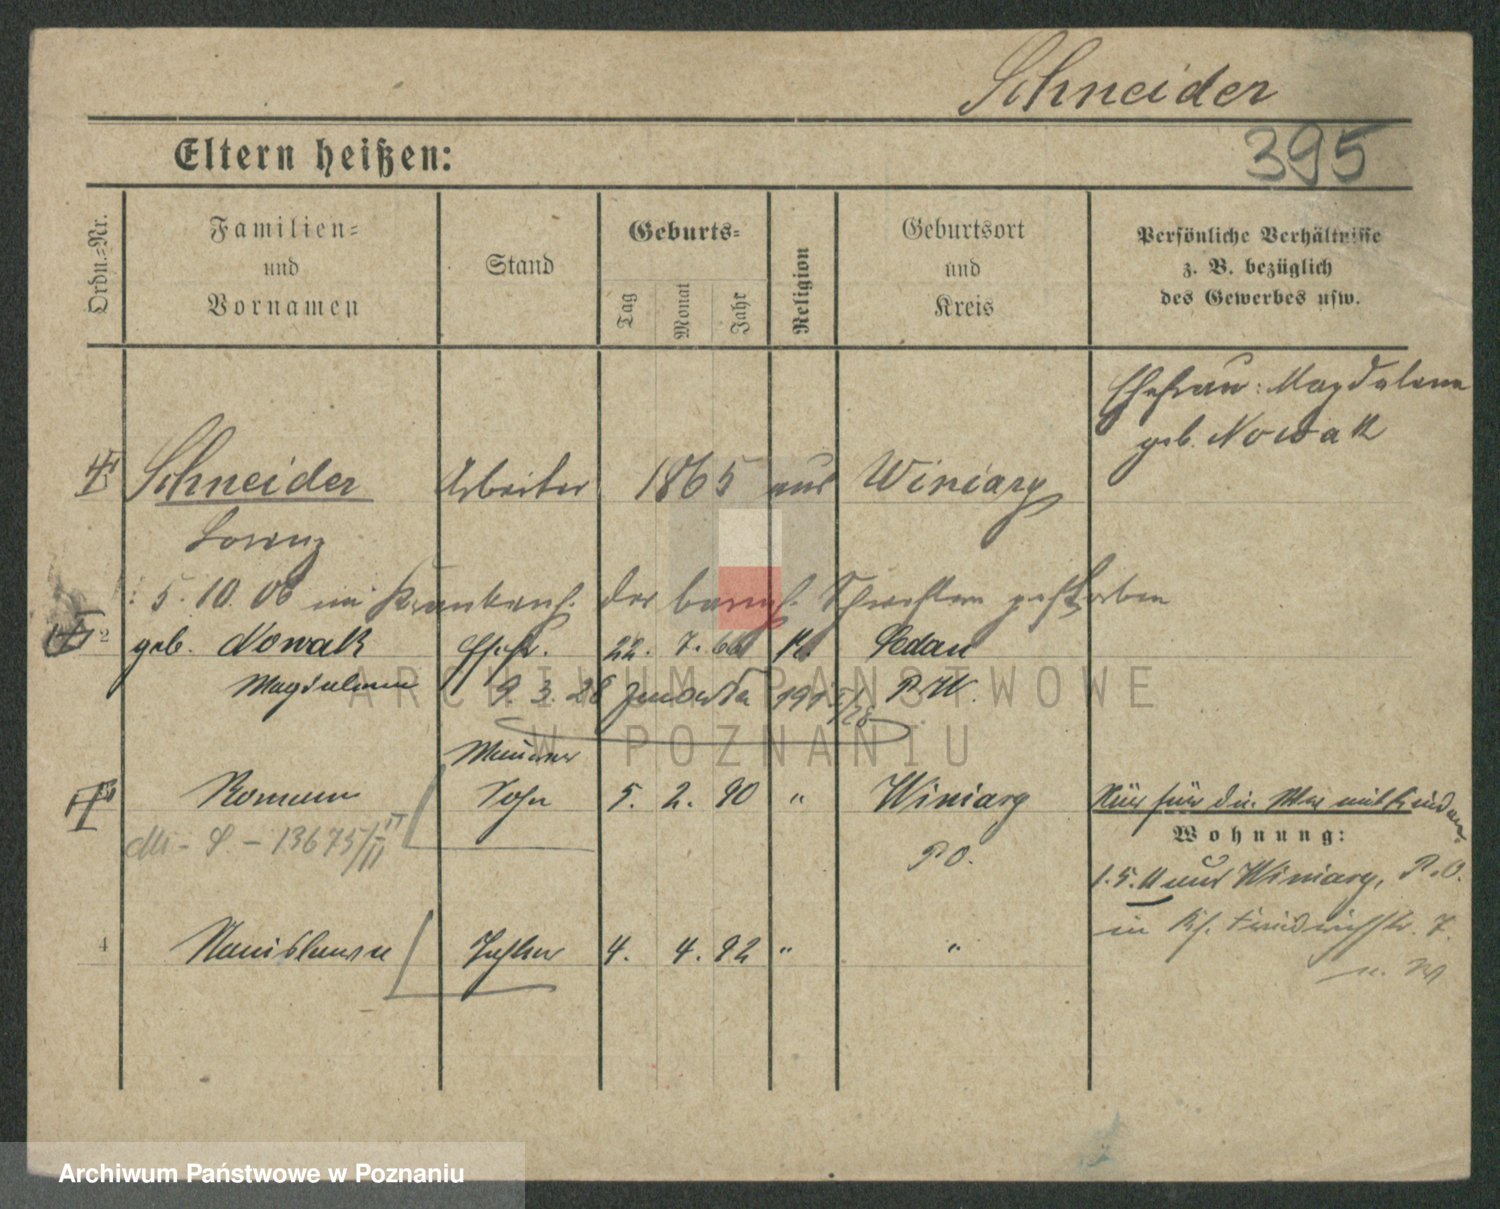 Schneider
Eltern heißen:
395
Ordn.-Nr.
Familien-
und
Vornamen
Stand
Geburts-
Tag
Monat
Jahr
Religion
Geburtsort
und
Kreis
Persönliche Verhältnisse
z. B. bezüglich
des Gewerbes usw.
Ehefrau: Magdalena
geb. Nowak
Schneider Arbeiter 1865 aus Winiary
Lorenz
5. 10. 06 im Krankenh. der barmh. Schwestern gestorben
2 geb. Nowak Ehefr. 22. 7. 66 K. Sedan
Magdalena 9. 3. 28 P. W.
Maurer
Roman Sohn 5. 2. 90 " Winiary
P. O.
13675/II
Nur für die
Wohnung:
1. 5. 11 aus Winiary, P. O.
in
4 Stanislawa Tochter 4. 4. 92 " "
ARCHIWUM PAŃSTWOWE
W POZNANIU
Archiwum Państwowe w Poznaniu